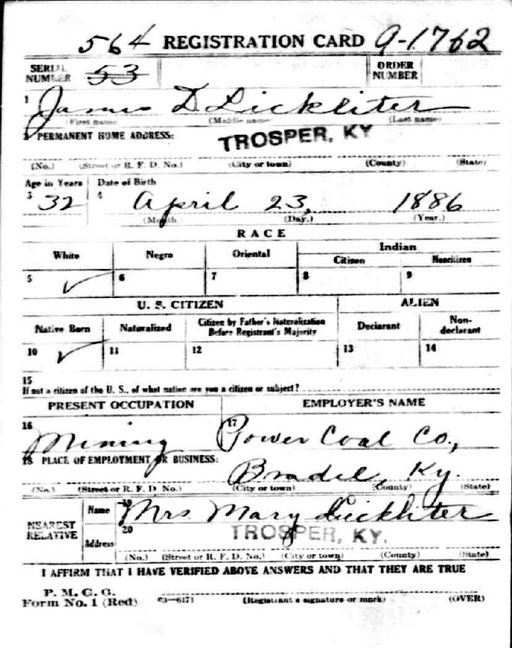 564 REGISTRATION CARD 9-1762
SERIAL NUMBER 53 ORDER NUMBER
1 James D Lickliter
(First name) (Middle name) (Last name)
2 PERMANENT HOME ADDRESS: TROSPER, KY
(No.) (Street or R. F. D. No.) (City or town) (County) (State)
Age in Years Date of Birth
3 32 4 April 23, 1886
(Month.) (Day.) (Year.)
RACE
White Negro Oriental Indian
Citizen Noncitizen
5 6 7 8 9
U. S. CITIZEN ALIEN
Native Born Naturalized Citizen by Father's Naturalization Before Registrant's Majority Declarant Non-declarant
10 11 12 13 14
15
If not a citizen of the U. S., of what nation are you a citizen or subject?
PRESENT OCCUPATION EMPLOYER'S NAME
16 Mining 17 Power Coal Co.,
18 PLACE OF EMPLOYMENT OR BUSINESS:
Ky.
(No.) (Street or R. F. D. No.) (City or town) (County) (State)
NEAREST RELATIVE Name 19 Mrs Mary Lickliter
Address 20 TROSPER, KY.
(No.) (Street or R. F. D. No.) (City or town) (County) (State)
I AFFIRM THAT I HAVE VERIFIED ABOVE ANSWERS AND THAT THEY ARE TRUE
P. M. G. O.
Form No. 1 (Red) 03—6171 (Registrant's signature or mark) (OVER)